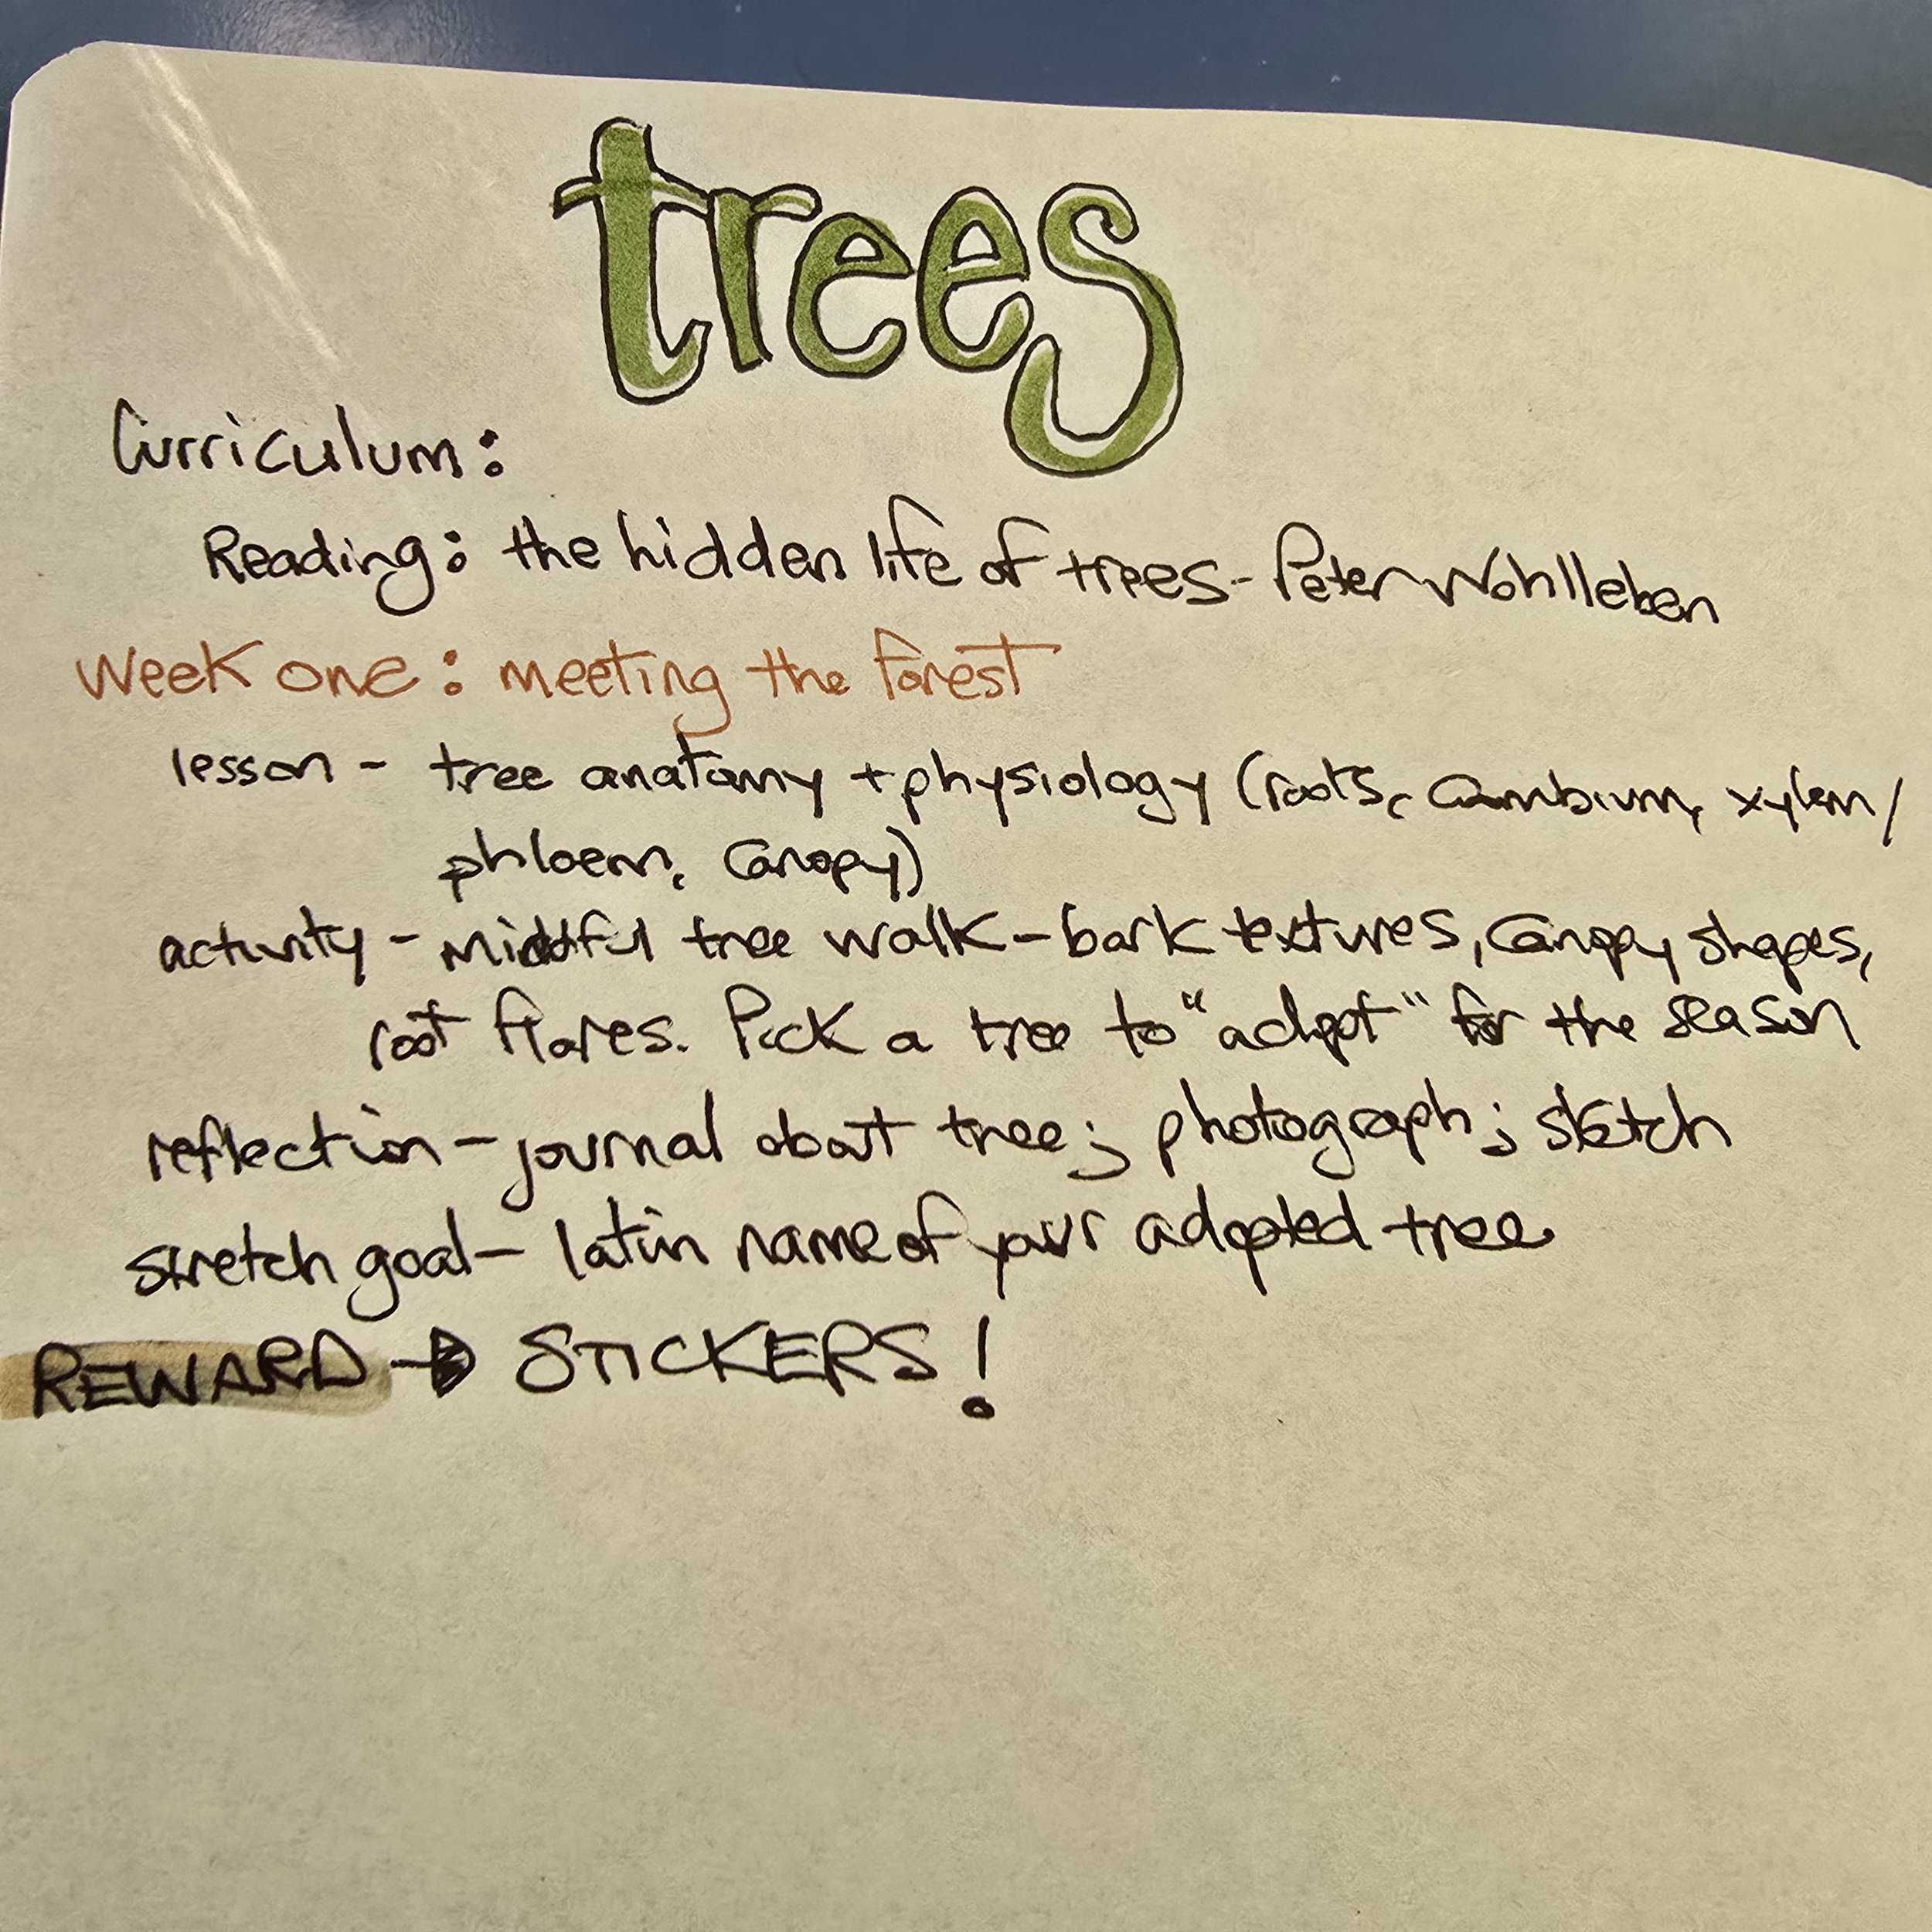 trees
Curriculum:
Reading: the hidden life of trees - Peter Wohlleben
Week one: meeting the forest
lesson - tree anatomy + physiology (roots, cambium, xylem/
phloem, canopy)
activity - mindful tree walk - bark textures, canopy shapes,
root flares. Pick a tree to "adopt" for the season
reflection - journal about tree; photograph; sketch
stretch goal - latin name of your adopted tree
REWARD → STICKERS!